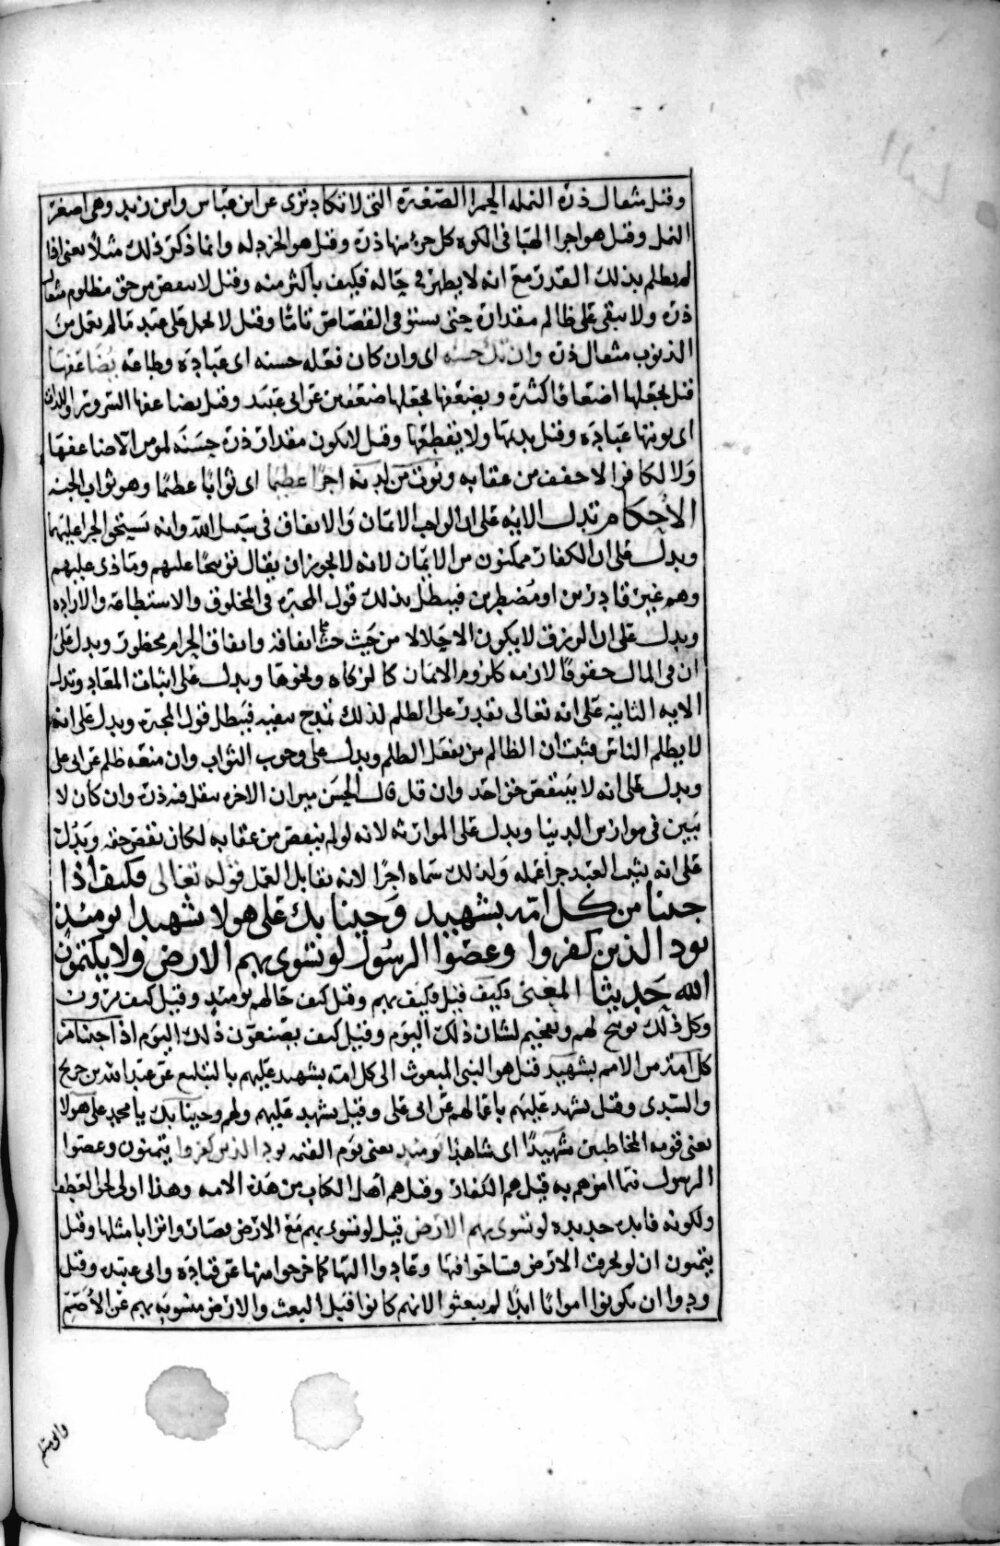 وقيل مثقال ذرة النملة الحمرا الصغيرة التى لا تكاد ترى عن ابن عباس وابن زيد وهى اصغر
النمل وقيل هو اجزا الهبا فى الكوة كل جزء منها ذرة وقيل هو الخردله وانما ذكر ذلك مثلاً يعنى اذا
لم يظلم بذلك القدر مع انه لا يظهر فى حاله فكيف باكثر منه وقيل لا ينقص من حق مظلوم مثقال
ذرة ولا يبقى على ظالم مقدار حتى يستوفى القصاص تاما وقيل لا يحمل على عبد مالم يعمل من
الذنوب مثقال ذرة وان تك حسنة اى وان كان فعله حسنه اى عبادة وطاعه يضاعفها
قيل يجعلها اضعافا كثيرة ويضعفها يجعلها ضعفين عن ابى عبيد وقيل يضاعفها السرور واللذات
اى يوتها عبادة وقيل يديمها ولا يقطعها وقيل لا يكون مقدار ذرة حسنة لمومن الا ضاعفها
ولا لكافر الا خفف من عقابه ويوت من لدنه اجرا عظيما اى ثوابا عظيما وهو ثواب الجنه
الأحكام تدل الايه على ان الواجب الايمان والانفاق فى سبيل الله وانه يستحق الجزا عليهما
ويدل على ان الكفار ممكنون من الايمان لانه لا يجوز ان يقال توبيخا عليهم وماذى عليهم
وهم غير قادرين او مضطرين فيبطل بذلك قول المجبرة فى المخلوق والاستطاعة والارادة
ويدل على ان الرزق لا يكون الا حلالا من حيث حث على انفاقه وانفاق الحرام محظور ويدل على
ان فى المال حقوقا لازمه كلزوم الايمان كالزكاه ونحوها ويدل على اثبات المعاد وتدل
الايه الثانية على انه تعالى يقدر على الظلم لذلك تمدح بنفيه فيبطل قول المجبرة ويدل على انه
لا يظلم الناس فثبت ان الظالم من يفعل الظلم ويدل على وجوب الثواب وان منعه ظلم عن ابى على
ويدل على انه لا ينقص حق احد وان قل قال الحسن ميزان الاخره يثقل فيه ذرة وان كان لا
يبين فى موازين الدنيا ويدل على الموازنه لانه لو لم ينقص من عقابه لكان نقص حقه ويدل
على انه يثيب العبد جزا عمله ولذلك سماه اجرًا لانه يقابل العمل قوله تعالى فكيف اذا
جينا من كل امه بشهيد وجينا بك على هولا شهيدا يومئذ
يود الذين كفروا وعصوا الرسول لو تسوى بهم الارض ولا يكتمون
الله حديثا المعنى فكيف قيل فكيف بهم وقيل كيف حالهم يومئذ وقيل كيف يرون
وكل ذلك توبيخ لهم وتفخيم لشان ذلك اليوم وقيل كيف يصنعون ذلك اليوم اذا جينا من
كل امة من الامم بشهيد قيل هو النبى المبعوث الى كل امه يشهد عليهم بالتبليغ عن عبد الله بن جريج
والسدى وقيل يشهد عليهم باعمالهم عن ابى على وقيل يشهد عليهم ولهم وجينا بك يا محمد على هولا
يعنى قومه المخاطبين شهيدًا اى شاهدًا يومئذ يعنى يوم القيمه يود الذين كفروا يتمنون وعصوا
الرسول فيما امرهم به قيل هم الكفار وقيل هم اهل الكتاب من هذه الامه وهذا اولى لحق العطف
ولكونه فايده جديده لو تسوى بهم الارض قيل لو تسوى بهم مع الارض فصاروا ترابا مثلها وقيل
يتمنون ان لو تخرقت الارض فساخوا فيها وعادوا اليها كما خرجوا منها عن قتادة وابى عبيده وقيل
ودوا ان يكونوا امواتا ابدًا لم يبعثوا لانهم كانوا قبل البعث والارض مستويه بهم عن الأصم